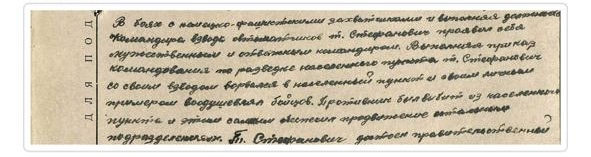 В боях с немецко-фашистскими захватчиками и выполняя должность
командира взвода автоматчиков т. Стефанович проявил себя
мужественным и отважным командиром. Выполняя приказ
командования по разведке населенного пункта т. Стефанович
со своим взводом ворвался в населенный пункт и своим личным
примером воодушевлял бойцов. Противник был выбит из населенного
пункта и этим самым обеспечил продвижение остальным
подразделениям. Т. Стефанович достоен правительственной
ДЛЯ ПОД